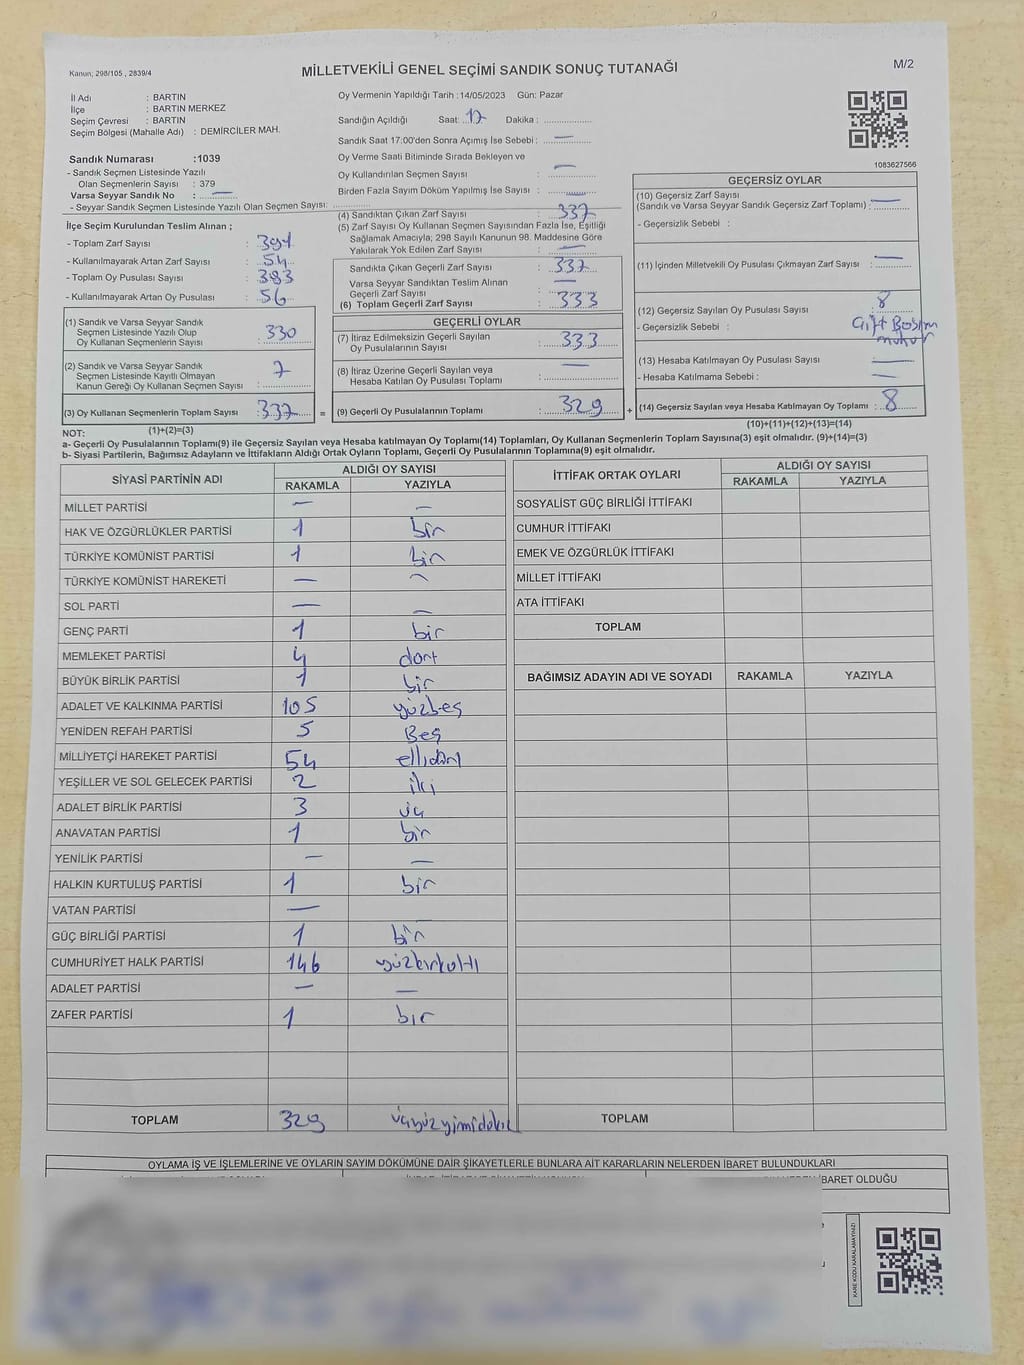 Kanun; 298/105 , 2839/4
MİLLETVEKİLİ GENEL SEÇİMİ SANDIK SONUÇ TUTANAĞI
M/2
İl Adı : BARTIN
İlçe : BARTIN MERKEZ
Seçim Çevresi : BARTIN
Seçim Bölgesi (Mahalle Adı) : DEMİRCİLER MAH.
Sandık Numarası :1039
- Sandık Seçmen Listesinde Yazılı
Olan Seçmenlerin Sayısı : 379
Varsa Seyyar Sandık No : —
- Seyyar Sandık Seçmen Listesinde Yazılı Olan Seçmen Sayısı:
Oy Vermenin Yapıldığı Tarih :14/05/2023 Gün: Pazar
Sandığın Açıldığı Saat: 17 Dakika :
Sandık Saat 17:00'den Sonra Açımış İse Sebebi : —
Oy Verme Saati Bitiminde Sırada Bekleyen ve
Oy Kullandırılan Seçmen Sayısı : —
Birden Fazla Sayım Döküm Yapılmış İse Sayısı :
1083627566
İlçe Seçim Kurulundan Teslim Alınan ;
- Toplam Zarf Sayısı : 391
- Kullanılmayarak Artan Zarf Sayısı : 54
- Toplam Oy Pusulası Sayısı : 383
- Kullanılmayarak Artan Oy Pusulası : 56
(1) Sandık ve Varsa Seyyar Sandık
Seçmen Listesinde Yazılı Olup
Oy Kullanan Seçmenlerin Sayısı : 330
(2) Sandık ve Varsa Seyyar Sandık
Seçmen Listesinde Kayıtlı Olmayan
Kanun Gereği Oy Kullanan Seçmen Sayısı : 7
(3) Oy Kullanan Seçmenlerin Toplam Sayısı : 337 =
(1)+(2)=(3)
(4) Sandıktan Çıkan Zarf Sayısı : 337
(5) Zarf Sayısı Oy Kullanan Seçmen Sayısından Fazla İse, Eşitliği
Sağlamak Amacıyla; 298 Sayılı Kanunun 98. Maddesine Göre
Yakılarak Yok Edilen Zarf Sayısı : —
Sandıkta Çıkan Geçerli Zarf Sayısı : 337
Varsa Seyyar Sandıktan Teslim Alınan
Geçerli Zarf Sayısı : —
(6) Toplam Geçerli Zarf Sayısı : 333
GEÇERLİ OYLAR
(7) İtiraz Edilmeksizin Geçerli Sayılan
Oy Pusulalarının Sayısı : 333
(8) İtiraz Üzerine Geçerli Sayılan veya
Hesaba Katılan Oy Pusulası Toplamı : —
(9) Geçerli Oy Pusulalarının Toplamı : 329 +
GEÇERSİZ OYLAR
(10) Geçersiz Zarf Sayısı
(Sandık ve Varsa Seyyar Sandık Geçersiz Zarf Toplamı) : —
- Geçersizlik Sebebi :
(11) İçinden Milletvekili Oy Pusulası Çıkmayan Zarf Sayısı : —
(12) Geçersiz Sayılan Oy Pusulası Sayısı : 8
- Geçersizlik Sebebi : Çift Basım
mühür
(13) Hesaba Katılmayan Oy Pusulası Sayısı : —
- Hesaba Katılmama Sebebi : —
(14) Geçersiz Sayılan veya Hesaba Katılmayan Oy Toplamı : 8
(10)+(11)+(12)+(13)=(14)
NOT:
a- Geçerli Oy Pusulalarının Toplamı(9) ile Geçersiz Sayılan veya Hesaba katılmayan Oy Toplamı(14) Toplamları, Oy Kullanan Seçmenlerin Toplam Sayısına(3) eşit olmalıdır. (9)+(14)=(3)
b- Siyasi Partilerin, Bağımsız Adayların ve İttifakların Aldığı Ortak Oyların Toplamı, Geçerli Oy Pusulalarının Toplamına(9) eşit olmalıdır.
SİYASİ PARTİNİN ADI ALDIĞI OY SAYISI
RAKAMLA YAZIYLA
MİLLET PARTİSİ — —
HAK VE ÖZGÜRLÜKLER PARTİSİ 1 bir
TÜRKİYE KOMÜNİST PARTİSİ 1 bir
TÜRKİYE KOMÜNİST HAREKETİ — —
SOL PARTİ — —
GENÇ PARTİ 1 bir
MEMLEKET PARTİSİ 4 dört
BÜYÜK BİRLİK PARTİSİ 1 bir
ADALET VE KALKINMA PARTİSİ 105 yüzbeş
YENİDEN REFAH PARTİSİ 5 Beş
MİLLİYETÇİ HAREKET PARTİSİ 54 ellidört
YEŞİLLER VE SOL GELECEK PARTİSİ 2 iki
ADALET BİRLİK PARTİSİ 3 üç
ANAVATAN PARTİSİ 1 bir
YENİLİK PARTİSİ — —
HALKIN KURTULUŞ PARTİSİ 1 bir
VATAN PARTİSİ —
GÜÇ BİRLİĞİ PARTİSİ 1 bir
CUMHURİYET HALK PARTİSİ 146 yüzkırkaltı
ADALET PARTİSİ — —
ZAFER PARTİSİ 1 bir
TOPLAM 329 üçyüzyirmidokuz
İTTİFAK ORTAK OYLARI ALDIĞI OY SAYISI
RAKAMLA YAZIYLA
SOSYALİST GÜÇ BİRLİĞİ İTTİFAKI
CUMHUR İTTİFAKI
EMEK VE ÖZGÜRLÜK İTTİFAKI
MİLLET İTTİFAKI
ATA İTTİFAKI
TOPLAM
BAĞIMSIZ ADAYIN ADI VE SOYADI RAKAMLA YAZIYLA
TOPLAM
OYLAMA İŞ VE İŞLEMLERİNE VE OYLARIN SAYIM DÖKÜMÜNE DAİR ŞİKAYETLERLE BUNLARA AİT KARARLARIN NELERDEN İBARET BULUNDUKLARI
İBARET OLDUĞU
KARE KODU KARALAMAYINIZ!